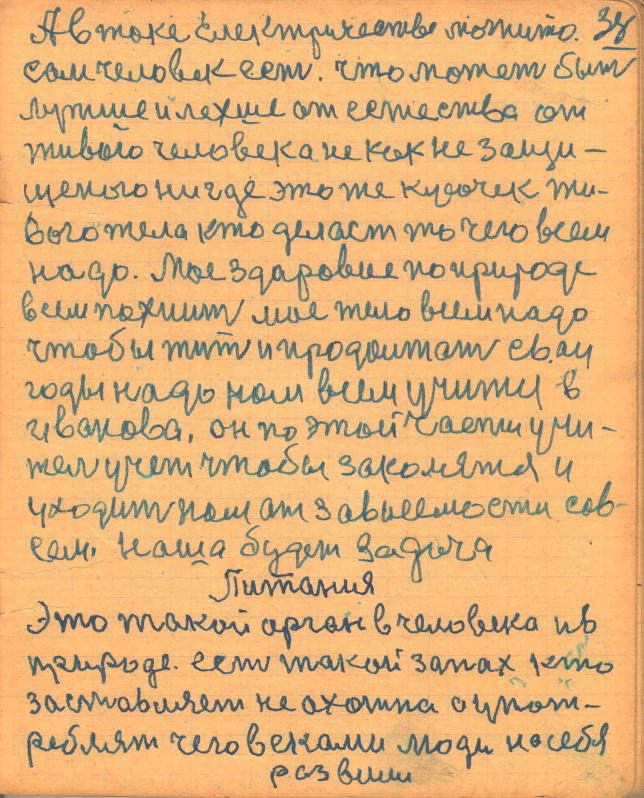 А в токе електричестве можити. 38
сам человек ест. что может быт
лутше и лехше от естества от
живого человека не как не защи-
щеного нигде это же кусочек жи-
вого тела кто деласт то чего всем
надо. Мое здаровие по природе
всем пахнит мое тело всем надо
чтобы жит и продолжат свои
годы надо нам всем учится в
иванова, он по этой части учи-
тел учет чтобы закалятся и
уходит нам от завысемости сов-
сем. наша будет задача
Питания
Это такой орган в человека и в
природе. ест такой запах кто
заставляет не охотна а упот-
реблят человеками люди на себя
развили